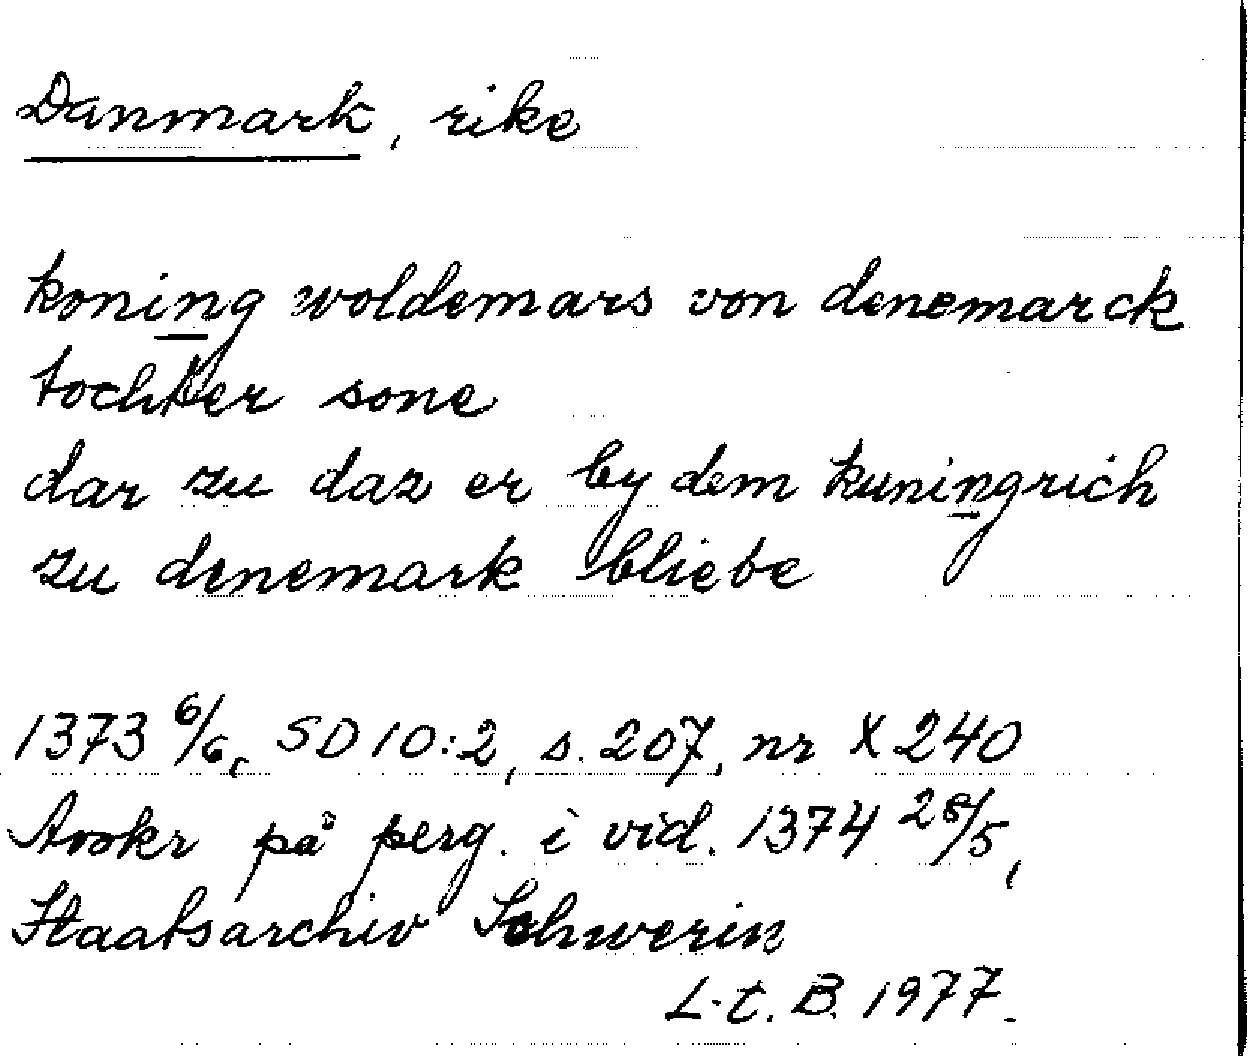 Danmark, rike
koning woldemars von denemarck
tochter sone
dar zu daz er by dem kuningrich
zu denemark bliebe
1373 6/6, SD 10:2, s. 207, nr X 240
Avskr på perg. i vid. 1374 28/5,
Staatsarchiv Schwerin
L.t.B. 1977.